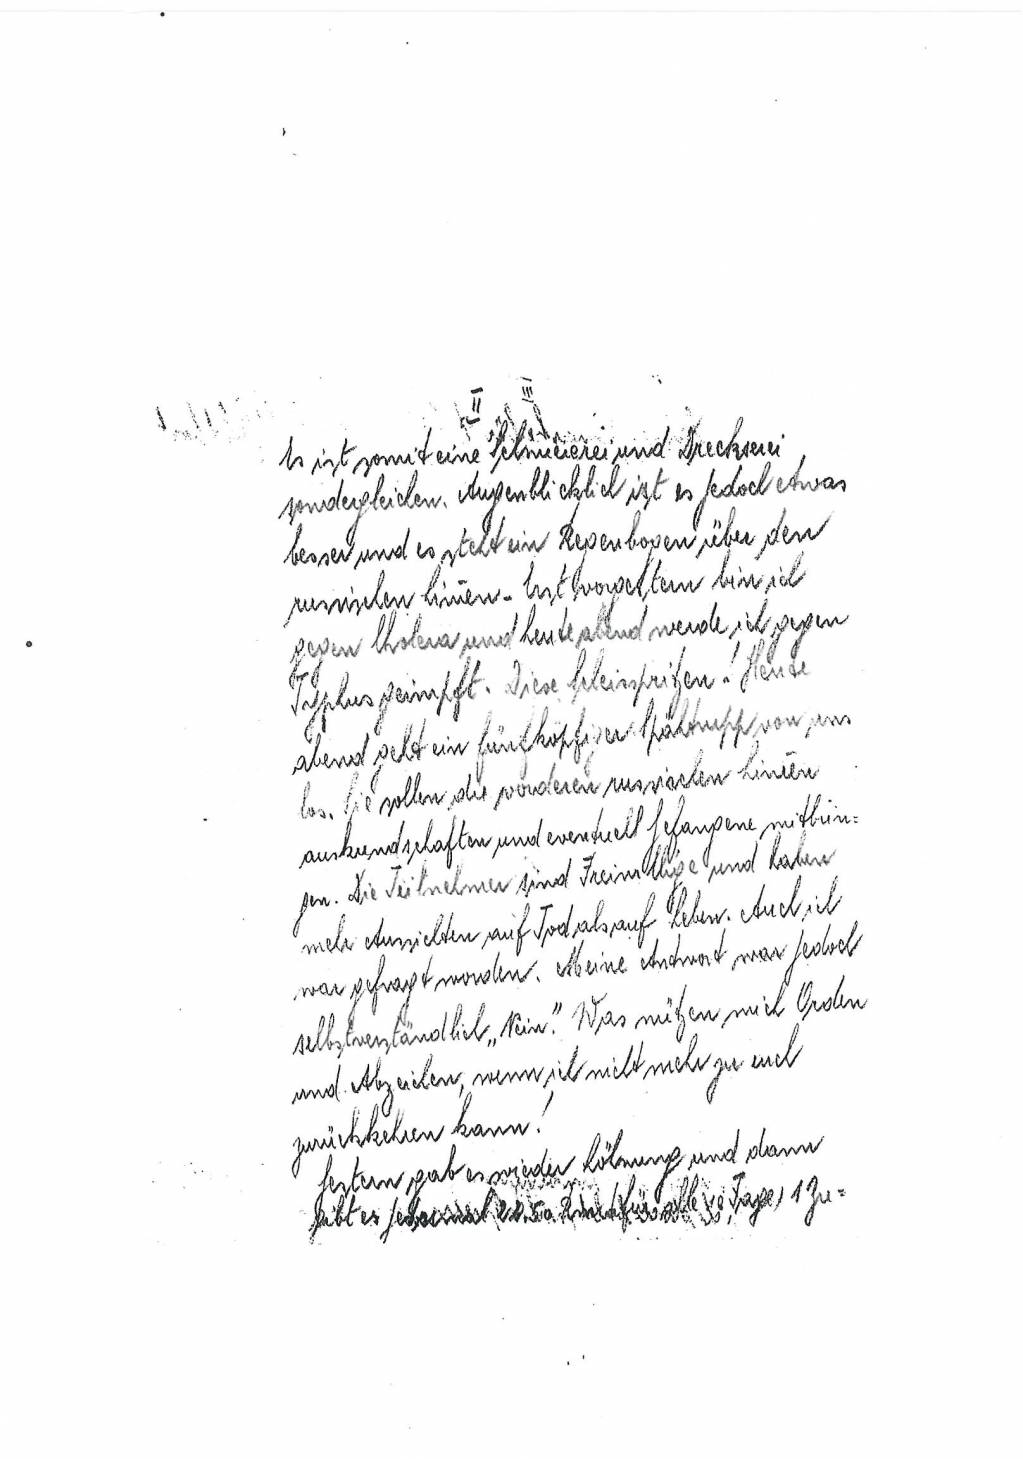 II III
Es ist somit eine Schmiererei und Dreckserei
sondergleichen. Augenblicklich ist es jedoch etwas
besser und es steht ein Regenbogen über den
russischen Linien. Erst vorgestern bin ich
gegen Cholera und heute abend werde ich gegen
Typhus geimpft. Diese Scheisspritzen! Heute
abend geht ein fünfköpfiger Spähtrupp von uns
los. Sie sollen die vorderen russischen Linien
auskundschaften und eventuell Gefangene mitbrin=
gen. Die Teilnehmer sind Freiwillige und haben
mehr Aussichten auf Tod als auf Leben. Auch ich
war gefragt worden. Meine Antwort war jedoch
selbstverständlich „Nein". Was nützen mich Orden
und Abzeichen, wenn ich nicht mehr zu euch
zurückkehren kann!
Gestern gab es wieder Löhnung und dann
gibt es jedesmal für alle 10 Tage, 1 Zu=